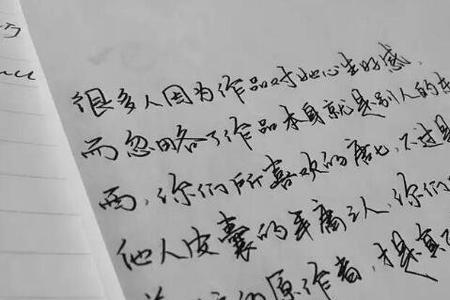 很多人因为作品对她心生好感,
而忽略了作品本身就是别人的
面,你们所喜欢的唐七,不过是
他人皮囊的车腐之人,你们
的原作者,才是真